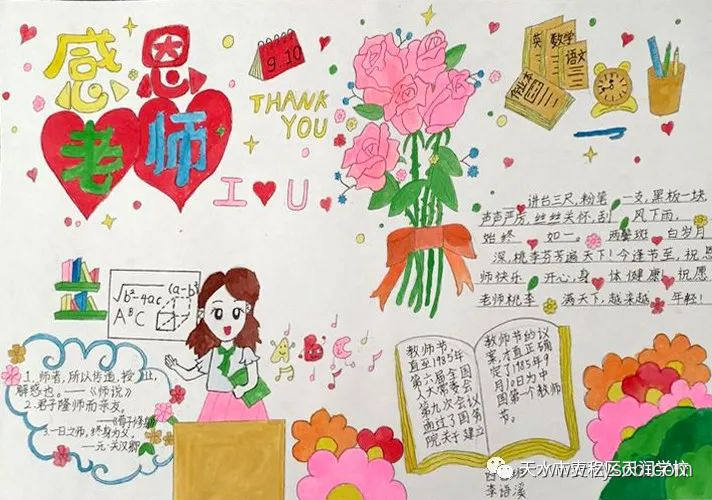 感恩
老师
9.10
THANK
YOU
I U
英
数学
语文
讲台三尺,粉笔 一支,黑板一块
声声严厉,丝丝关怀,刮 风下雨,
始终 如一。 两鬓斑 白岁月
深,桃李芬芳遍天下!今逢节至,祝愿
师快乐 开心,身 体健康! 祝愿
老师桃李 满天下,越来越 年轻!
√b²-4ac (a-b)
ABC
A B C
1.师者,所以传道,授 业,
解惑也。——《师说》
2.君子隆师而亲友。
3.一日之师,终身为父。
——元·关汉卿
教师节
直至1985年
第六届全国
人大常委会
第九次会议
通过了国务
院关于建立
教师节的议
案,才真正确
定了1985年9
月10日为中
国第一个教师
节。
李语溪